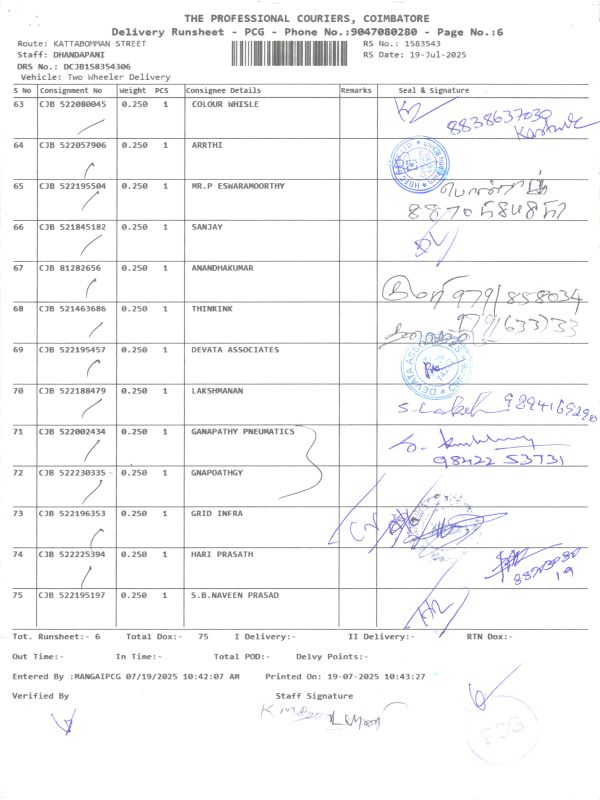 THE PROFESSIONAL COURIERS, COIMBATORE
Delivery Runsheet - PCG - Phone No.:9047080280 - Page No.:6
Route: KATTABOMMAN STREET RS No.: 1583543
Staff: DHANDAPANI RS Date: 19-Jul-2025
DRS No.: DCJB158354306
Vehicle: Two Wheeler Delivery
S No Consignment No Weight PCS Consignee Details Remarks Seal & Signature
63 CJB 522080045 0.250 1 COLOUR WHISLE
8838637030
64 CJB 522057906 0.250 1 ARRTHI
65 CJB 522195504 0.250 1 MR.P ESWARAMOORTHY
8870584857
66 CJB 521845182 0.250 1 SANJAY
67 CJB 81282656 0.250 1 ANANDHAKUMAR
9791858034
68 CJB 521463686 0.250 1 THINKINK
69 CJB 522195457 0.250 1 DEVATA ASSOCIATES
DEVATA ASSOCIATES
70 CJB 522188479 0.250 1 LAKSHMANAN
71 CJB 522002434 0.250 1 GANAPATHY PNEUMATICS
98422 53731
72 CJB 522230335 0.250 1 GNAPOATHGY
73 CJB 522196353 0.250 1 GRID INFRA
74 CJB 522225394 0.250 1 HARI PRASATH
75 CJB 522195197 0.250 1 S.B.NAVEEN PRASAD
Tot. Runsheet:- 6 Total Dox:- 75 I Delivery:- II Delivery:- RTN Dox:-
Out Time:- In Time:- Total POD:- Delvy Points:-
Entered By :MANGAIPCG 07/19/2025 10:42:07 AM Printed On: 19-07-2025 10:43:27
Verified By Staff Signature
PCG